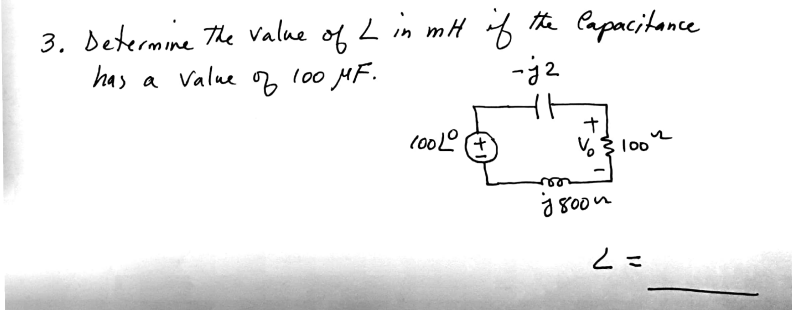 3. Determine The value of L in mH if the Capacitance
has a value of 100 µF.
-j2
100∠0
+
-
+
Vo
-
100Ω
j800Ω
L =